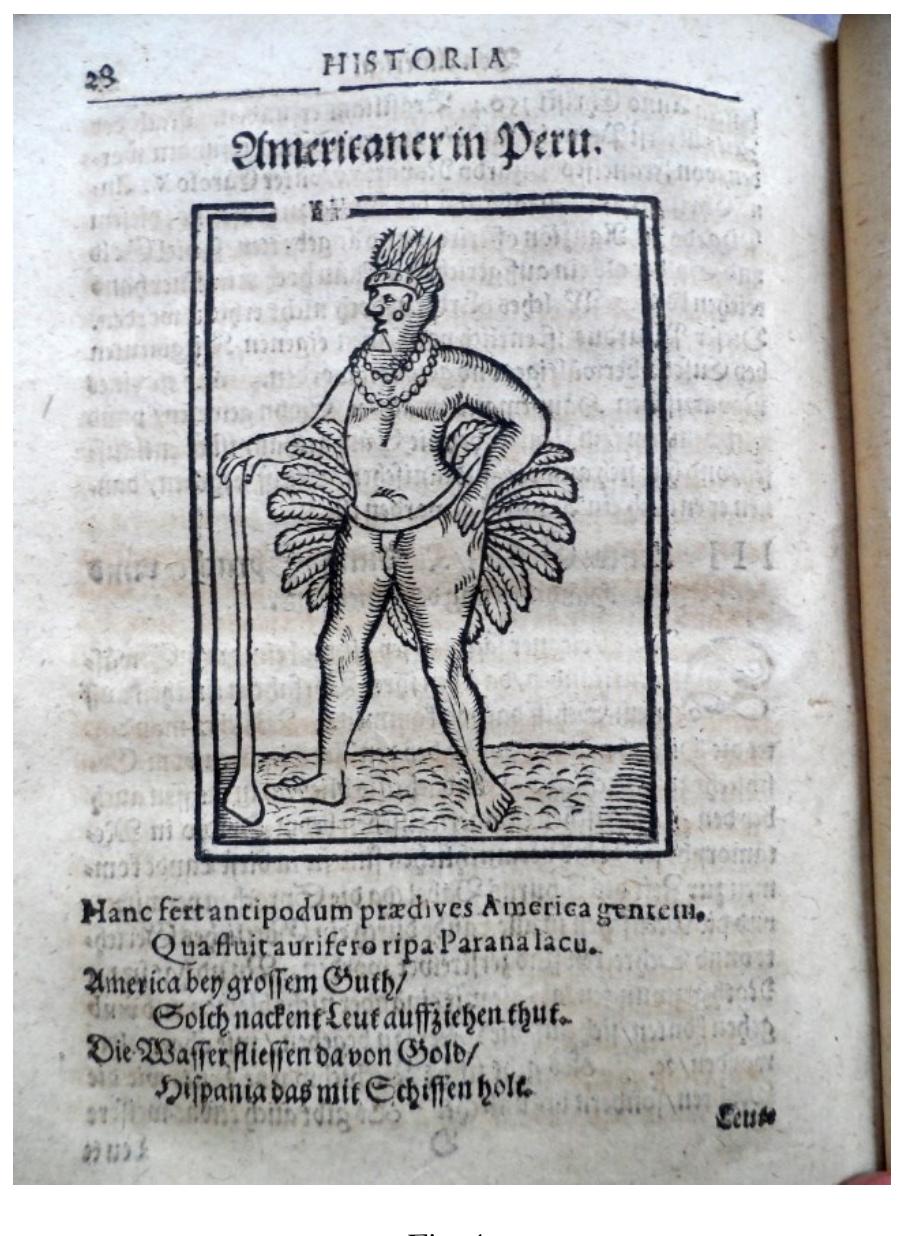 28
HISTORIA
Americaner in Peru.
Hanc fert antipodum prædives America gentem.
Qua fluit aurifero ripa Parana lacu.
America bey grossem Guth/
Solch nackent Leut auffziehen thut.
Die Wasser fliessen da von Gold/
Hispania das mit Schiffen holt.
Leute